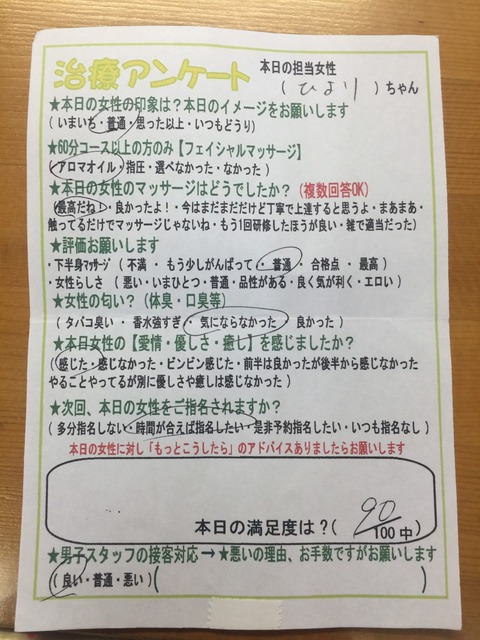 治療アンケート 本日の担当女性
( ひより )ちゃん
★本日の女性の印象は？本日のイメージをお願いします
( いまいち・普通・思った以上・いつもどうり)
★60分コース以上の方のみ【フェイシャルマッサージ】
(アロマオイル・指圧・選べなかった・なかった )
★本日の女性のマッサージはどうでしたか？(複数回答OK)
(最高だね！・良かったよ！・今はまだまだだけど丁寧で上達すると思うよ・まあまあ・
触ってるだけでマッサージじゃないね・もう1回研修したほうが良い・雑で適当だった)
★評価お願いします
・下半身マッサージ ( 不満 ・ もう少しがんばって ・ 普通 ・ 合格点 ・ 最高 )
・女性らしさ ( 悪い・いまひとつ・普通・品性がある・良く気が利く・エロい )
★女性の匂い？ (体臭・口臭等)
( タバコ臭い ・ 香水強すぎ ・ 気にならなかった ・ 良かった )
★本日女性の【愛情・優しさ・癒し】を感じましたか？
(感じた・感じなかった・ビンビン感じた・前半は良かったが後半から感じなかった
やることやってるが別に優しさや癒しは感じなかった )
★次回、本日の女性をご指名されますか？
( 多分指名しない・時間が合えば指名したい・是非予約指名したい・いつも指名なし )
本日の女性に対し「もっとこうしたら」のアドバイスありましたらお願いします
本日の満足度は？( 90/100中 )
★男子スタッフの接客対応 → ★悪いの理由、お手数ですがお願いします
( 良い・普通・悪い ) ( )